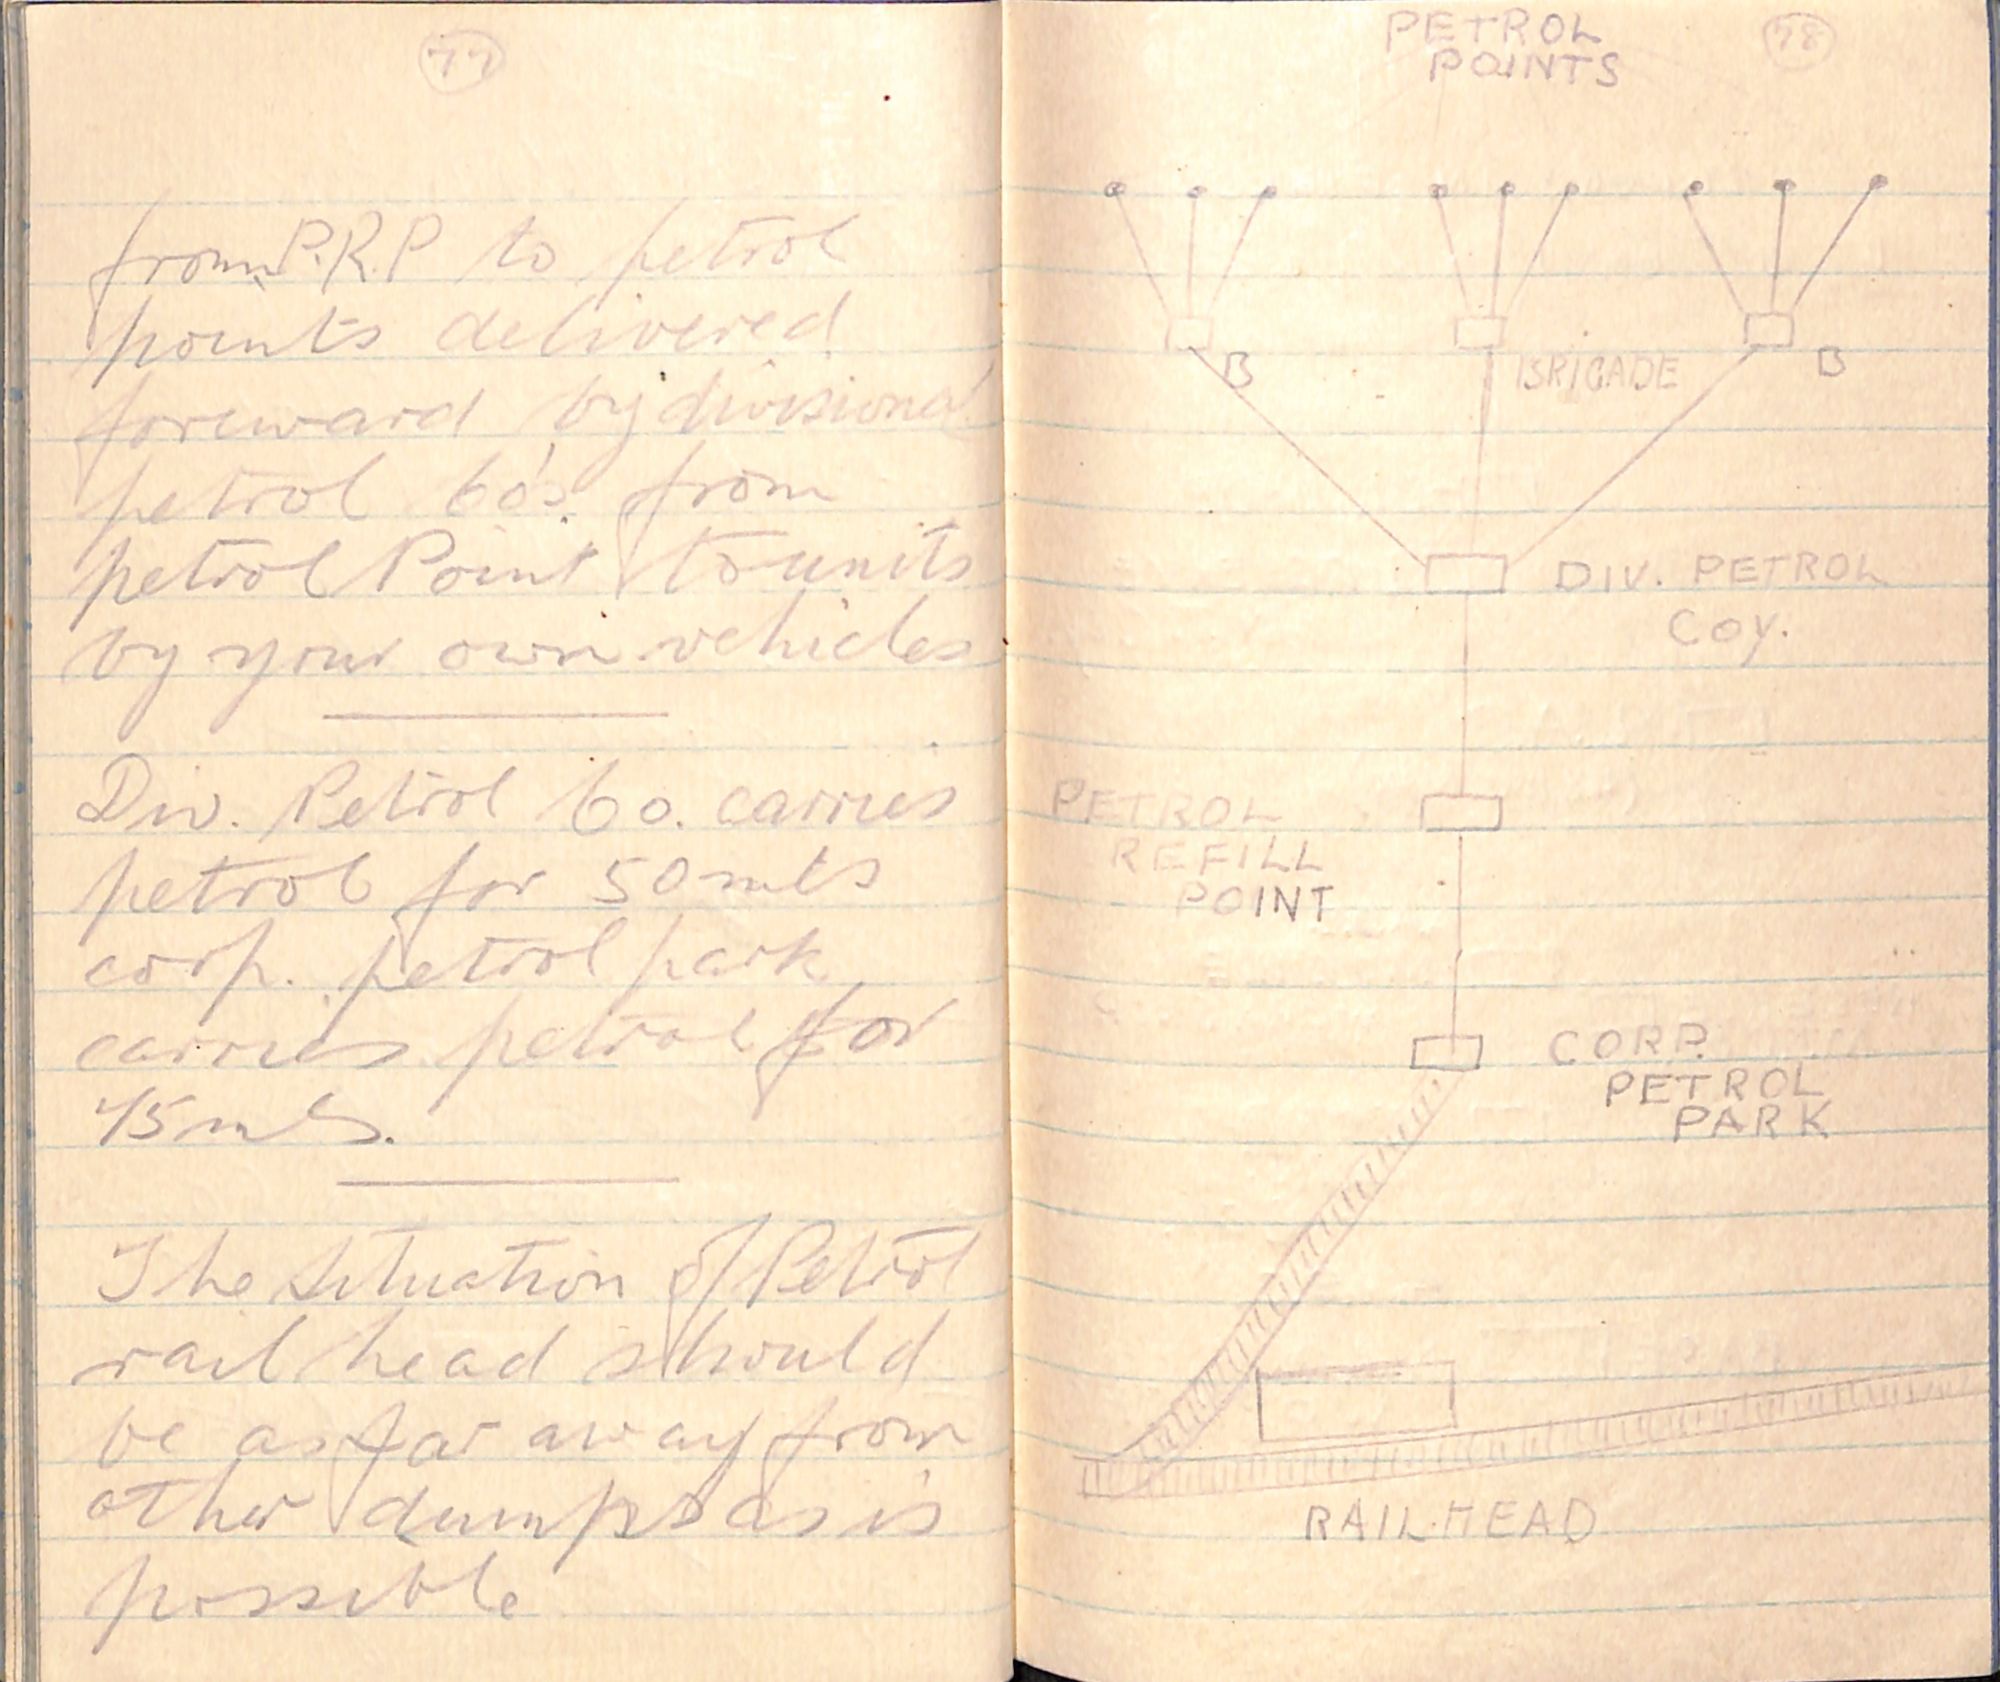 77
from P.R.P to petrol
points delivered
foreward by divisional
petrol Co's. from
petrol Point to units
by your own vehicles
Div. Petrol Co. carries
petrol for 50 mls
corp. petrol park
carries petrol for
75 mls.
The situation of Petrol
rail head should
be as far away from
other dumps as is
possible
78
PETROL
POINTS
B
BRIGADE
B
DIV. PETROL
COY.
PETROL
REFILL
POINT
CORP.
PETROL
PARK
RAIL.HEAD